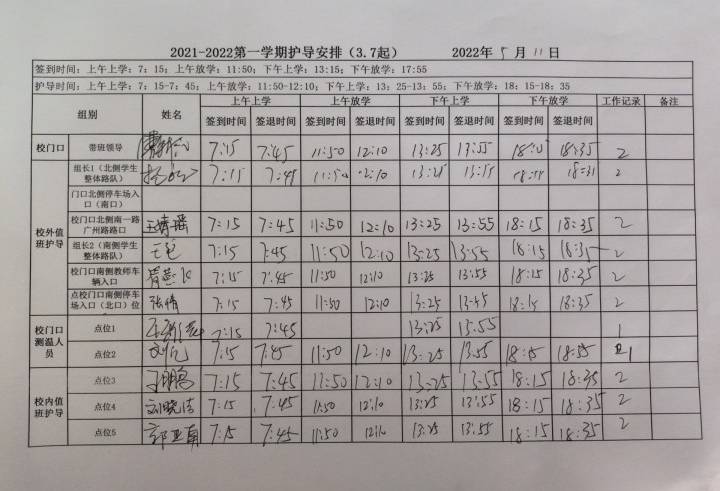 2021-2022第一学期护导安排（3.7起） 2022年 5 月 11 日
签到时间：上午上学：7；15；上午放学：11:50；下午上学：13:15；下午放学：17:55
护导时间：上午上学：7；15-7；45；上午放学：11:50-12:10；下午上学：13；25-13；55；下午放学：18；15-18；35
组别 姓名 上午上学 上午放学 下午上学 下午放学 工作记录 备注
签到时间 签退时间 签到时间 签退时间 签到时间 签退时间 签到时间 签退时间
校门口 带班领导 7:15 7:45 11:50 12:10 13:25 13:55 18:15 18:35 2
校外值班护导
组长1（北侧学生整体路队） 7:15 7:45 11:50 12:10 13:25 13:55 2
门口北侧停车场入口（南口）
校门口北侧南一路广州路路口 王婧瑶 7:15 7:45 11:50 12:10 13:25 13:55 18:15 18:35 2
组长2（南侧学生整体路队） 7:15 7:45 11:50 12:10 13:25 13:55 18:15 18:35 2
校门口南侧教师车辆入口 7:15 7:45 11:50 12:10 13:25 13:55 18:15 18:35 2
点校门口南侧停车场入口（北口）位 张倩 7:15 7:45 11:50 12:10 13:25 13:45 18:15 18:35 2
校门口测温人员
点位1 7:15 7:45 13:25 13:55 1
点位2 7:15 7:45 11:50 12:10 13:25 13:55 18:15 18:35 1
校内值班护导
点位3 7:15 7:45 11:50 12:10 13:25 13:55 18:15 18:35 2
点位4 刘晓洁 7:15 7:45 11:50 12:10 13:25 13:55 18:15 18:35 2
点位5 郭亚南 7:15 7:45 11:50 12:10 13:25 13:55 18:15 18:35 2